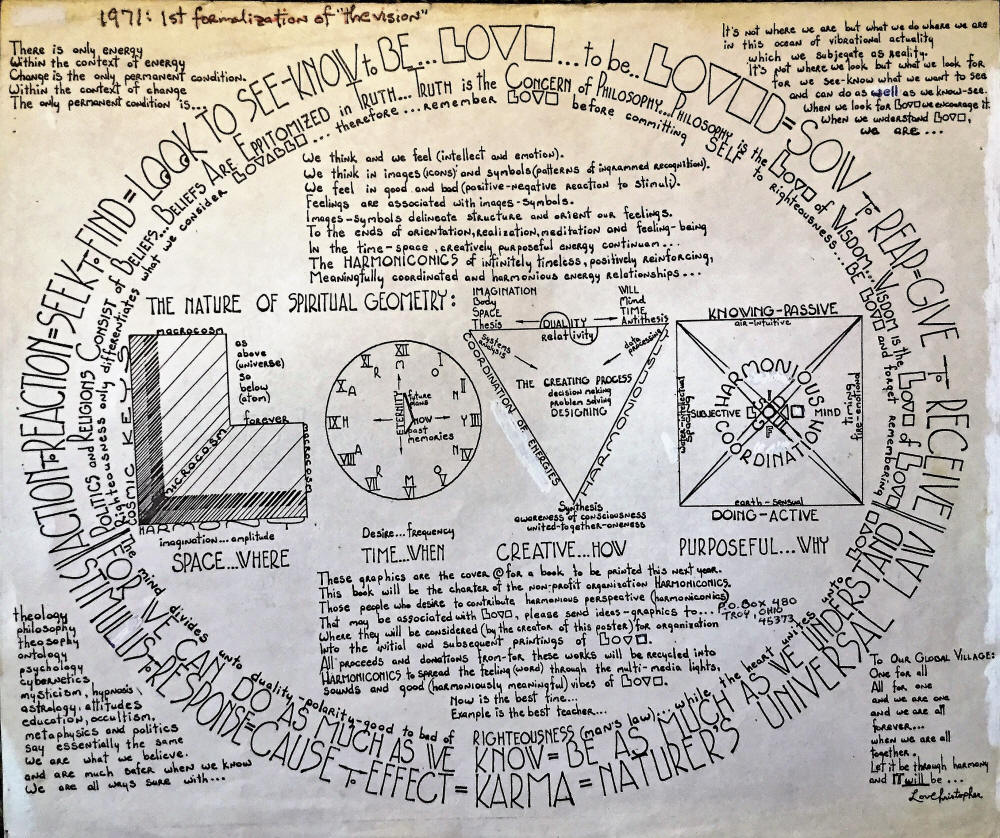 1971: 1st formalization of "the vision"
There is only energy
Within the context of energy
Change is the only permanent condition.
Within the context of change
The only permanent condition is...
It's not where we are but what we do where we are
in this ocean of vibrational actuality
which we subjegate as reality.
It's not where we look but what we look for
for we see-know what we want to see
and can do as well as we know-see.
When we look for LOVE we encourage it
When we understand LOVE,
we are ...
ACTION to REACTION = SEEK to FIND = LOOK TO SEE-KNOW to BE... LOVE ... to be.. LOVED = SOW to REAP = GIVE to RECEIVE
STIMULUS to RESPONSE = CAUSE to EFFECT = KARMA = NATURE'S UNIVERSAL LAW
POLITICS and RELIGIONS CONSIST of BELIEFS... BELIEFS ARE EPPITOMIZED in TRUTH... TRUTH is the CONCERN of PHILOSOPHY... PHILOSOPHY is the LOVE of WISDOM... WISDOM is the LOVE of LOVE
FOR WE CAN DO AS MUCH AS WE KNOW = BE AS MUCH AS WE UNDERSTAND
Righteousness only differentiates what we consider LOVABLE ... therefore .... remember LOVE before committing SELF to righteousness... BE LOVE and forget remembering LOVE
The mind divides unto quality-polarity-good to bad of RIGHTEOUSNESS (man's law)... while the heart unites unto
We think and we feel (intellect and emotion).
We think in images (icons) and symbols (patterns of ingrammed recognition).
We feel in good and bad (positive-negative reaction to stimuli).
Feelings are associated with images-symbols.
Images-symbols delineate structure and orient our feelings.
To the ends of orientation, realization, meditation and feeling-being
In the time-space, creatively purposeful energy continuum...
The HARMONICONICS of infinitely timeless, positively reinforcing,
Meaningfully coordinated and harmonious energy relationships...
THE NATURE OF SPIRITUAL GEOMETRY:
macrocosm
as
above
(universe)
so
below
(atom)
forever
microcosm
macrocosm
COSMIC KEYS
HARMON
imagination...amplitude
SPACE...WHERE
XII
I
II
III
IV
V
VI
VIII
IX
X
XI
M
O
R
Y
A
ETERNITY
future
plans
NOW
past
memories
Desire...frequency
TIME...WHEN
IMAGINATION
Body
SPACE
Thesis
WILL
Mind
TIME
Antithesis
DUALITY
relativity
systems
analysis
data
processing
THE CREATING PROCESS
decision making
problem solving
DESIGNING
COORDINATION OF ENERGIES
HARMONIOUSLY
Synthesis
awareness of consciousness
united-together-oneness
CREATIVE...HOW
KNOWING-PASSIVE
air-intuitive
HARMONIOUS
SUBJECTIVE
MIND
COORDINATION
water-intellectual
spacing
timing
fire-emotional
earth-sensual
DOING-ACTIVE
PURPOSEFUL...WHY
These graphics are the cover @ for a book to be printed this next year.
This book will be the charter of the non-profit organization HARMONICONICS.
Those people who desire to contribute harmonious perspective (harmoniconics)
That may be associated with LOVE, please send ideas-graphics to...
P.O. Box 480
TROY, OHIO
45373
Where they will be considered (by the creator of this poster) for organization
Into the initial and subsequent printings of LOVE.
All proceeds and donations from-for these works will be recycled into
HARMONICONICS to spread the feeling (word) through the multi-media lights,
sounds and good (harmoniously meaningful) vibes of LOVE.
Now is the best time...
Example is the best teacher...
theology
philosophy
theosophy
ontology
psychology
cybernetics
mysticism, hypnosis
astrology, attitudes
education, occultism,
metaphysics and politics
say essentially the same
We are what we believe.
and are much safer when we know
We are all ways sure with...
To Our Global Village:
One for all
All for one
and we are one
and we are all
forever...
when we are all
together.
Let it be through harmony
and IT will be ...
LoveChristopher